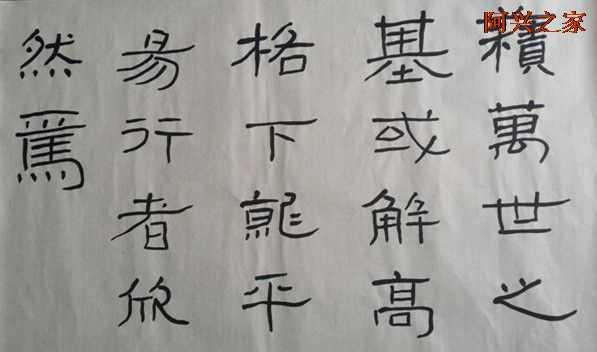 阿兴之家
積萬世之
基或解高
格下就平
易行者欣
然焉